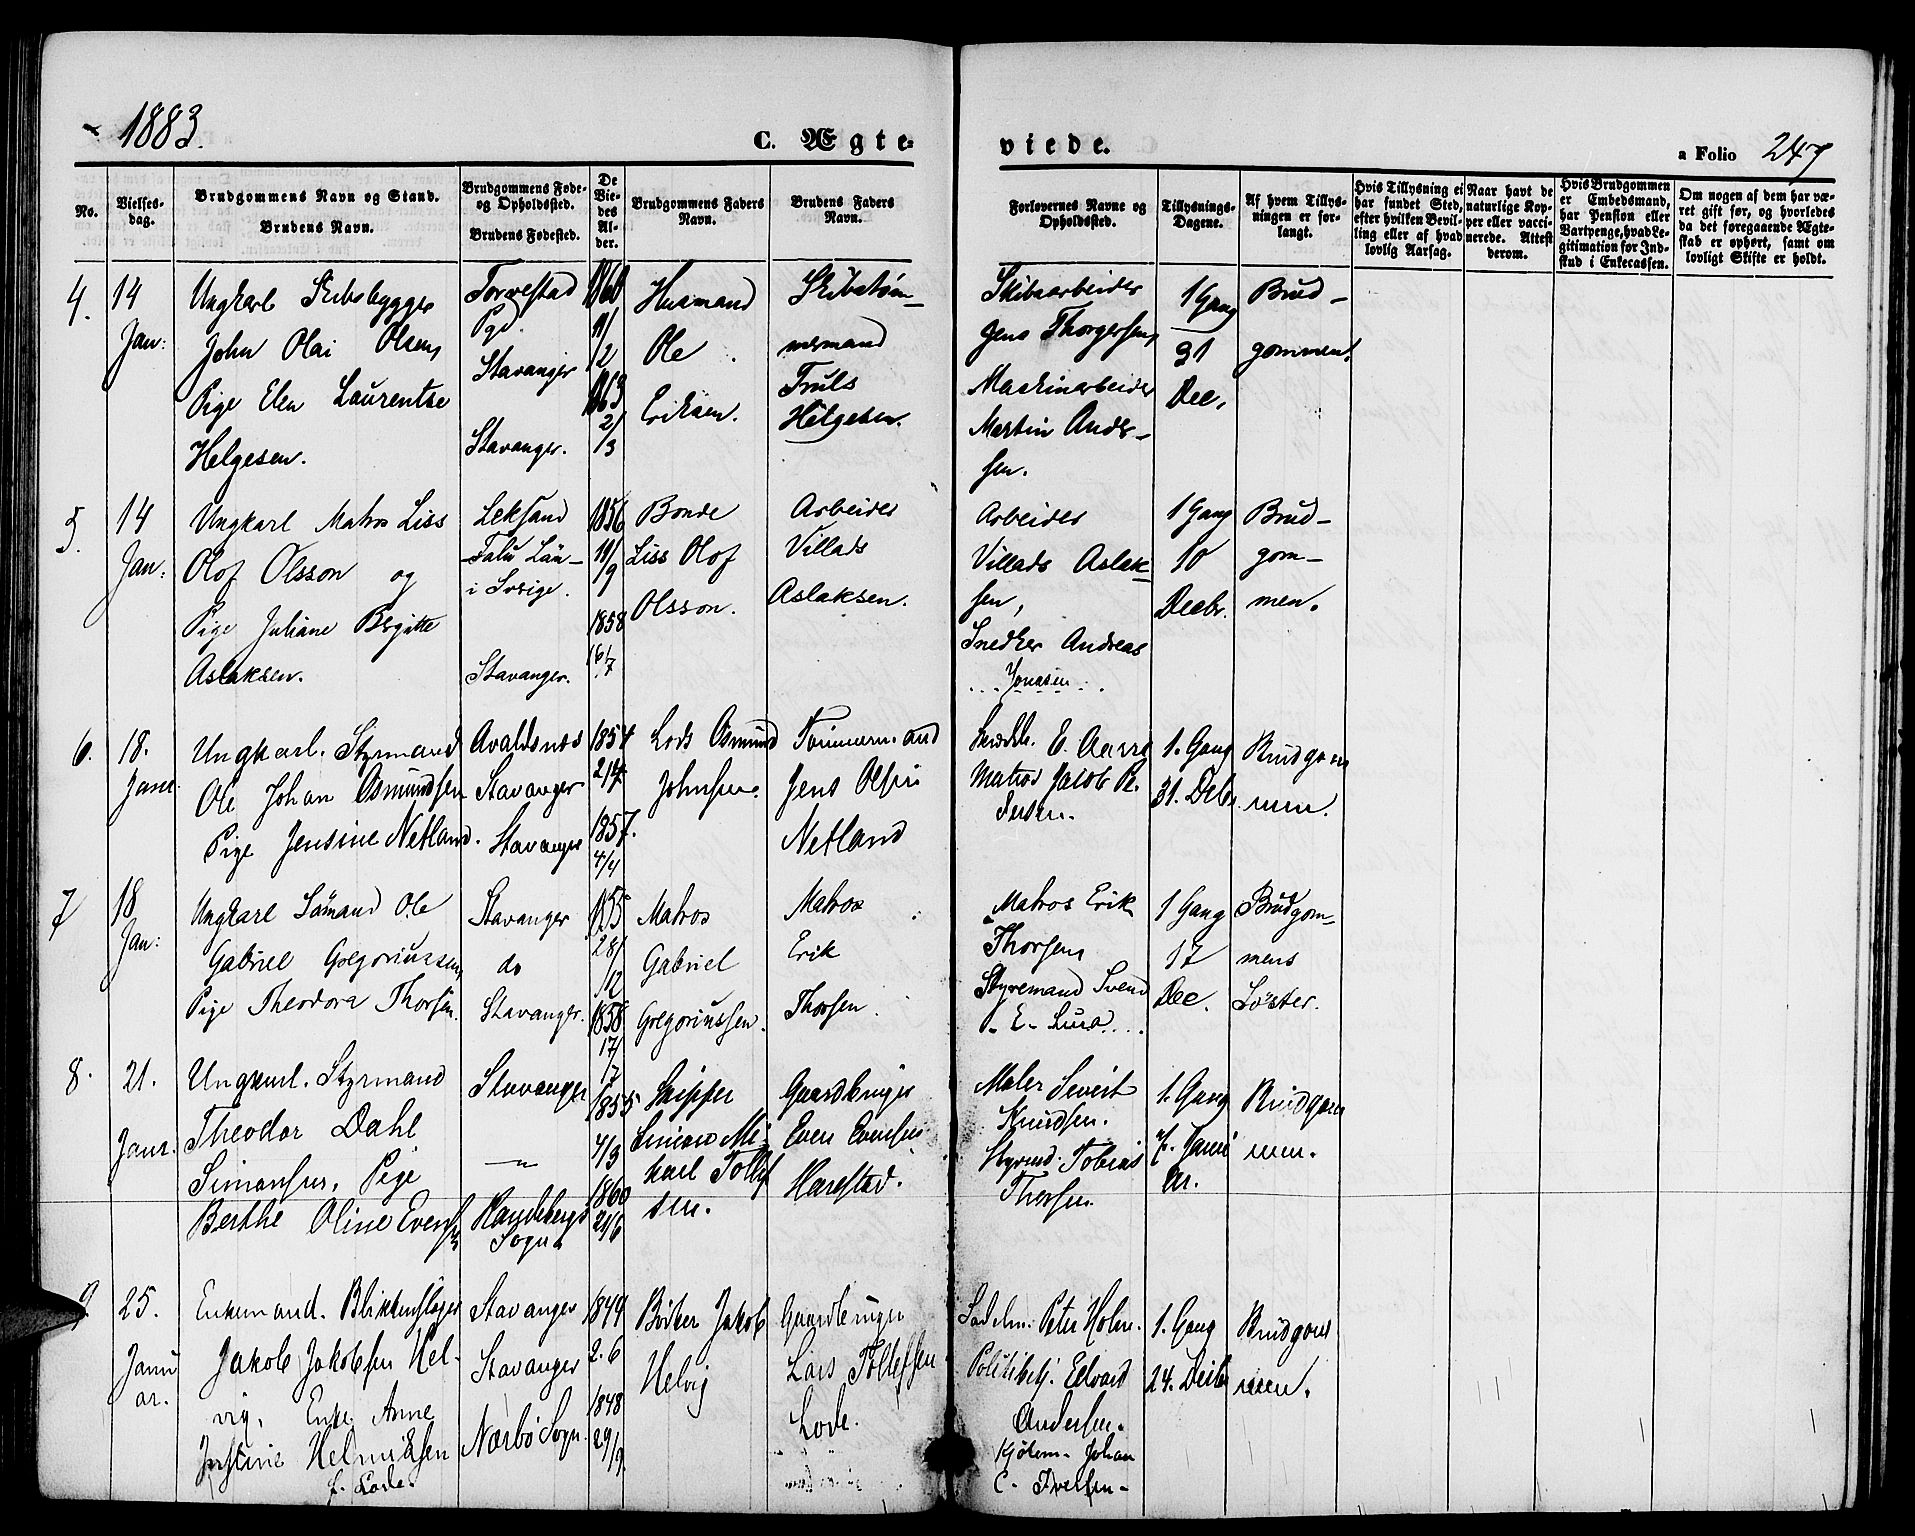 1883.
C. Ægte-
viede.
a Folio 247
No.
Vielses-
dag.
Brudgommens Navn og Stand.
Brudens Navn.
Brudgommens Føde-
og Opholdssted.
Brudens Fødested.
De
Vie-
des
Al-
der.
Brudgommens Faders
Navn.
Brudens Faders
Navn.
Forlovernes Navne og
Opholdssted.
Tillysnings-
Dagene.
Af hvem Tillys-
ningen er for-
langt.
Hvis Tillysning ei
har fundet Sted,
efter hvilken Bevil-
ling eller af hvad
lovlig Aarsag.
Naar havt de
naturlige Kop-
per eller vacci-
nerede. Attest
derom.
Hvis Brudgommen
er Embedsmand,
har Pension eller
Vartpenge, hvad Le-
gitimation for Ind-
skud i Enkecassen.
Om nogen af dem har væ-
ret gift før, og hvorledes
da det foregaaende Ægte-
skab er ophørt, samt om
lovligt Skifte er holdt.
4.
14
Jan:
Ungkarl Skibsbygger
John Olai Olsen,
Pige Elen Laurentse
Helgesen.
Torvestad
Pgd.
Stavanger
Stavanger.
1860
11/
/2
1863
2/
/3
Husmand
Ole
Eriksen.
Skibstøm-
mermand
Truls
Helgesen.
Skibsarbeider
Jens Thorgersen,
Maskinarbeider
Martin Ander-
sen.
1 Gang
31
Dec.
Brud-
gommen.
5.
14
Jan:
Ungkarl Matros Liss
Olof Olsson og
Pige Juliane Birgitte
Aslaksen.
Leksand
Falu Län-
i Sverige.
Stavanger.
1856
19/
/9
1858
16/
/7
Bonde
Liss Olof
Olsson.
Arbeider
Villads
Aslaksen.
Arbeider
Villads Aslak-
sen,
Snedker Andreas
Jonasen.
1 Gang
10
Decbr.
Brud-
gom-
men.
6.
18.
Janr.
Ungkarl. Styrmand
Ole Johan Osmundsen
Pige Jensine Netland.
Avaldsnes
Stavanger
Stavanger
1854
2/4.
1857.
4/4
Lods Osmund
Johnsen.
Tømmermand
Jens Olsen
Netland
E.
Matros Jacob Pe-
dersen.
1. Gang
31. Decbr
Brudgom
men.
7
18
Jan:
Ungkarl Sømand Ole
Gabriel Gregoriussen,
Pige Theodora Thorsen.
Stavanger
do
Stavanger.
1855
28/
/12
1858
17/
/7
Matros
Gabriel
Gregoriussen.
Matros
Erik
Thorsen
Matros Erik
Thorsen
Styrmand Svend
E. Lura
1 Gang
17
Dec.
Brudgom-
mens
Søster.
8.
21.
Janr.
Ungkarl. Styrmand
Theodor Dahl
Simonsen, Pige
Berthe Oline Evensen
Stavanger
—"—
Randebergs
Sogn
1855
4/3
1860
21/6
Skipper
Simon Mi-
kael Tollef
sen.
Gaardbruger
Even Evensen
Harestad.
Maler Sivert
Knudsen.
Styrmd. Tobias
Thorsen.
1. Gang
7. Janu
ar.
Brudgom
men.
9.
25.
Janu
ar.
Enkemand. Blikkenslager
Jakob Jakobsen Hel-
vig, Enke Anne
Justine Helmiksen
f. Lode.
Stavanger
Stavanger
Nærbø Sogn.
1844
2.6
1848
29/9.
Bødker Jakob
Helvig
Gaardbruger
Lars Tollefsen
Lode.
Sadelm. Peter Holm.
Politibetj. Edvard
Andersen.
Kjøbm. Johan
C. Iversen-
1. Gang
24. Decbr
Brudgom
men.